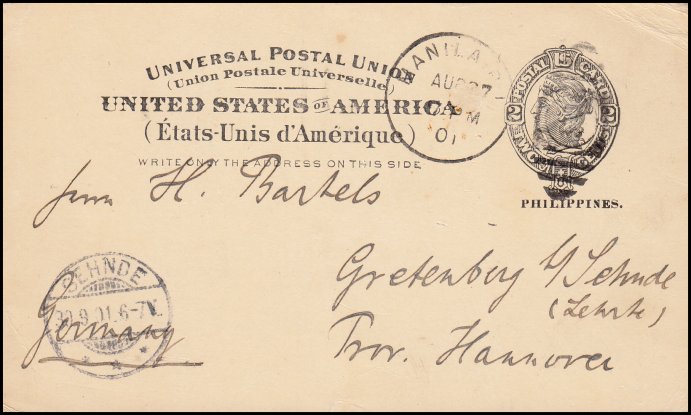 UNIVERSAL POSTAL UNION
(Union Postale Universelle)
UNITED STATES OF AMERICA.
(États-Unis d'Amérique)
WRITE ONLY THE ADDRESS ON THIS SIDE
MANILA
AUG 27
PM
01
POSTAL CARD
PHILIPPINES.
Herrn H. Bartels
Gretenberg b/Sehnde
(Lehrte)
Prov. Hannover
SEHNDE
9.01.6-7V.
Germany